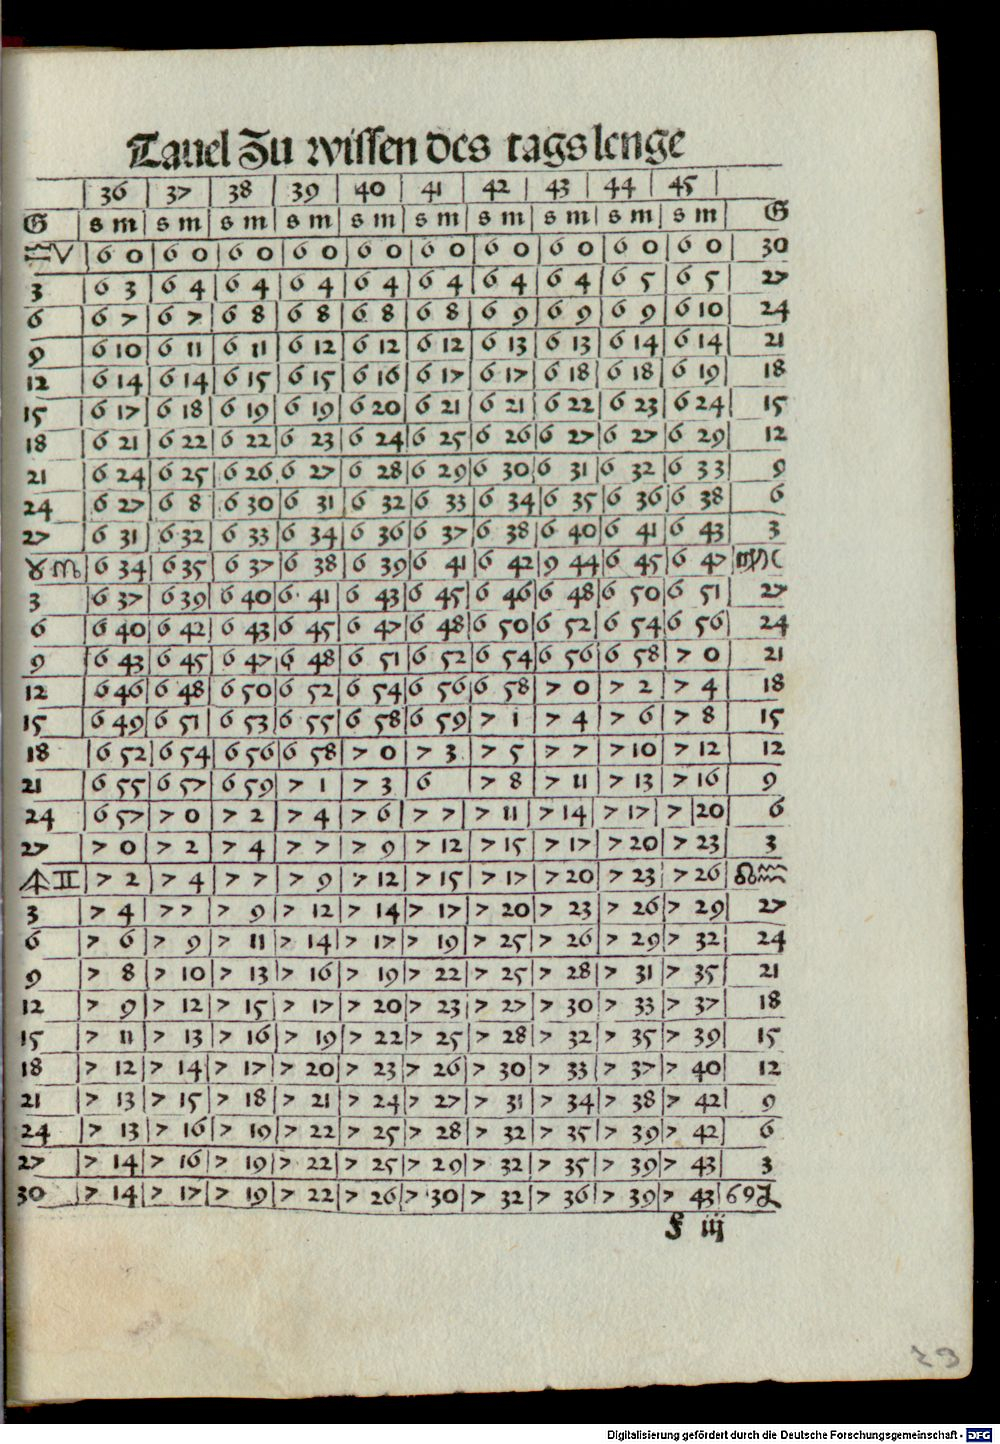 Tauel Zu wissen des tags lenge
36 37 38 39 40 41 42 43 44 45
G s m s m s m s m s m s m s m s m s m s m G
♎ ♈ 6 0 6 0 6 0 6 0 6 0 6 0 6 0 6 0 6 0 6 0 30
3 6 3 6 4 6 4 6 4 6 4 6 4 6 4 6 4 6 5 6 5 27
6 6 7 6 7 6 8 6 8 6 8 6 8 6 9 6 9 6 9 6 10 24
9 6 10 6 11 6 11 6 12 6 12 6 12 6 13 6 13 6 14 6 14 21
12 6 14 6 14 6 15 6 15 6 16 6 17 6 17 6 18 6 18 6 19 18
15 6 17 6 18 6 19 6 19 6 20 6 21 6 21 6 22 6 23 6 24 15
18 6 21 6 22 6 22 6 23 6 24 6 25 6 26 6 27 6 27 6 29 12
21 6 24 6 25 6 26 6 27 6 28 6 29 6 30 6 31 6 32 6 33 9
24 6 27 6 8 6 30 6 31 6 32 6 33 6 34 6 35 6 36 6 38 6
27 6 31 6 32 6 33 6 34 6 36 6 37 6 38 6 40 6 41 6 43 3
♉ ♏ 6 34 6 35 6 37 6 38 6 39 6 41 6 42 9 44 6 45 6 47 ♍ ♓
3 6 37 6 39 6 40 6 41 6 43 6 45 6 46 6 48 6 50 6 51 27
6 6 40 6 42 6 43 6 45 6 47 6 48 6 50 6 52 6 54 6 56 24
9 6 43 6 45 6 47 6 48 6 51 6 52 6 54 6 56 6 58 7 0 21
12 6 46 6 48 6 50 6 52 6 54 6 56 6 58 7 0 7 2 7 4 18
15 6 49 6 51 6 53 6 55 6 58 6 59 7 1 7 4 7 6 7 8 15
18 6 52 6 54 6 56 6 58 7 0 7 3 7 5 7 7 7 10 7 12 12
21 6 55 6 57 6 59 7 1 7 3 6 7 8 7 11 7 13 7 16 9
24 6 57 7 0 7 2 7 4 7 6 7 7 7 11 7 14 7 17 7 20 6
27 7 0 7 2 7 4 7 7 7 9 7 12 7 15 7 17 7 20 7 23 3
♐ ♊ 7 2 7 4 7 7 7 9 7 12 7 15 7 17 7 20 7 23 7 26 ♌ ♒
3 7 4 7 7 7 9 7 12 7 14 7 17 7 20 7 23 7 26 7 29 27
6 7 6 7 9 7 11 7 14 7 17 7 19 7 25 7 26 7 29 7 32 24
9 7 8 7 10 7 13 7 16 7 19 7 22 7 25 7 28 7 31 7 35 21
12 7 9 7 12 7 15 7 17 7 20 7 23 7 27 7 30 7 33 7 37 18
15 7 11 7 13 7 16 7 19 7 22 7 25 7 28 7 32 7 35 7 39 15
18 7 12 7 14 7 17 7 20 7 23 7 26 7 30 7 33 7 37 7 40 12
21 7 13 7 15 7 18 7 21 7 24 7 27 7 31 7 34 7 38 7 42 9
24 7 13 7 16 7 19 7 22 7 25 7 28 7 32 7 35 7 39 7 42 6
27 7 14 7 16 7 19 7 22 7 25 7 29 7 32 7 35 7 39 7 43 3
30 7 14 7 17 7 19 7 22 7 26 7 30 7 32 7 36 7 39 7 43 ♋ ♑
f iij
Digitalisierung gefördert durch die Deutsche Forschungsgemeinschaft - DFG